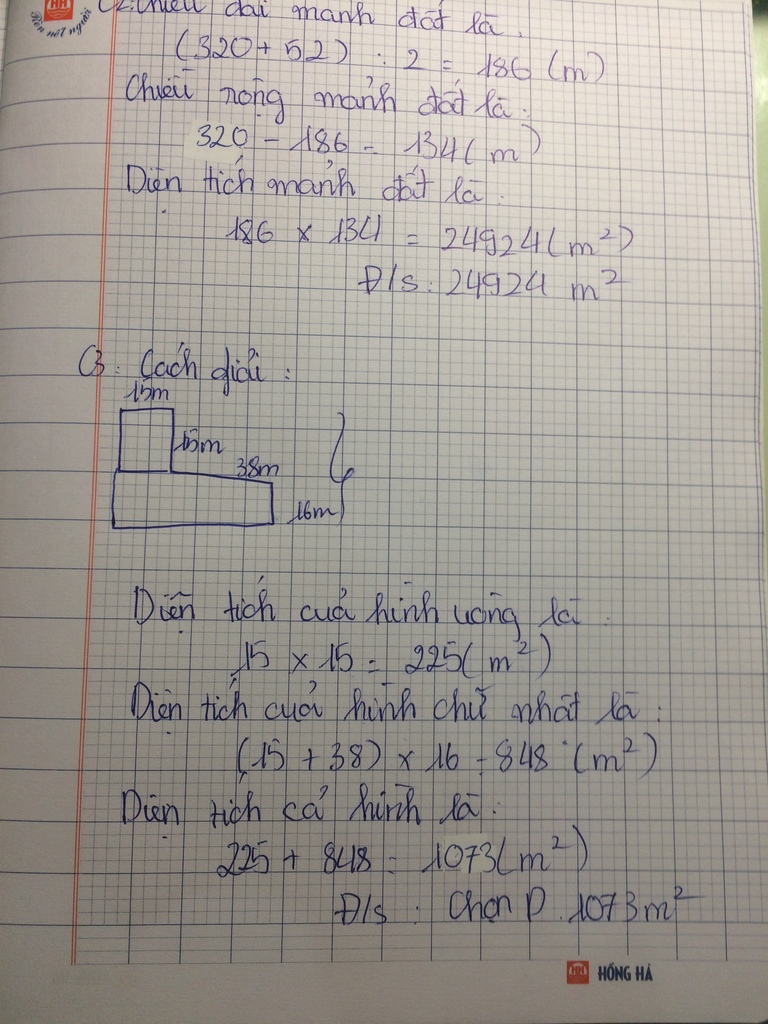 Rèn nết người
C2. Chiều dài mảnh đất là.
(320 + 52) : 2 = 186 (m)
Chiều rộng mảnh đất là :
320 - 186 = 134 (m)
Diện tích mảnh đất là :
186 x 134 = 24924 (m²)
Đ/s : 24924 m²
C3 : Cách giải :
15m
15m
38m
16m
Diện tích của hình vuông là :
15 x 15 = 225 (m²)
Diện tích của hình chữ nhật là :
(15 + 38) x 16 = 848 (m²)
Diện tích cả hình là :
225 + 848 = 1073 (m²)
Đ/s : Chọn D. 1073 m²
HỒNG HÀ